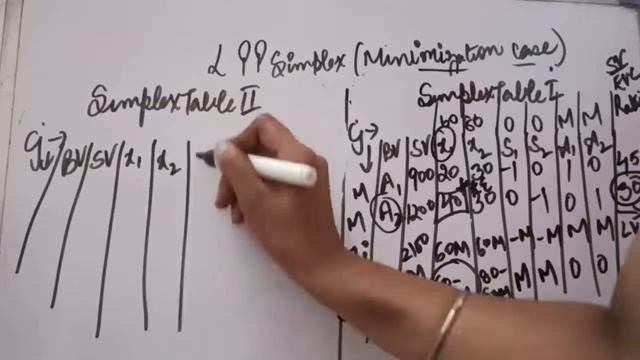 LPP Simplex (Minimization case)
Simplex Table II
Cj→ BV SV x₁ x₂
Simplex Table I
60 80 0 0 M M
Cj→ BV SV x₁ x₂ S₁ S₂ A₁ A₂
M A₁ 900 20 30 -1 0 1 0
M A₂ 1200 40 30 0 -1 0 1
2100 60M 60M -M -M M M
80- M M 0 0